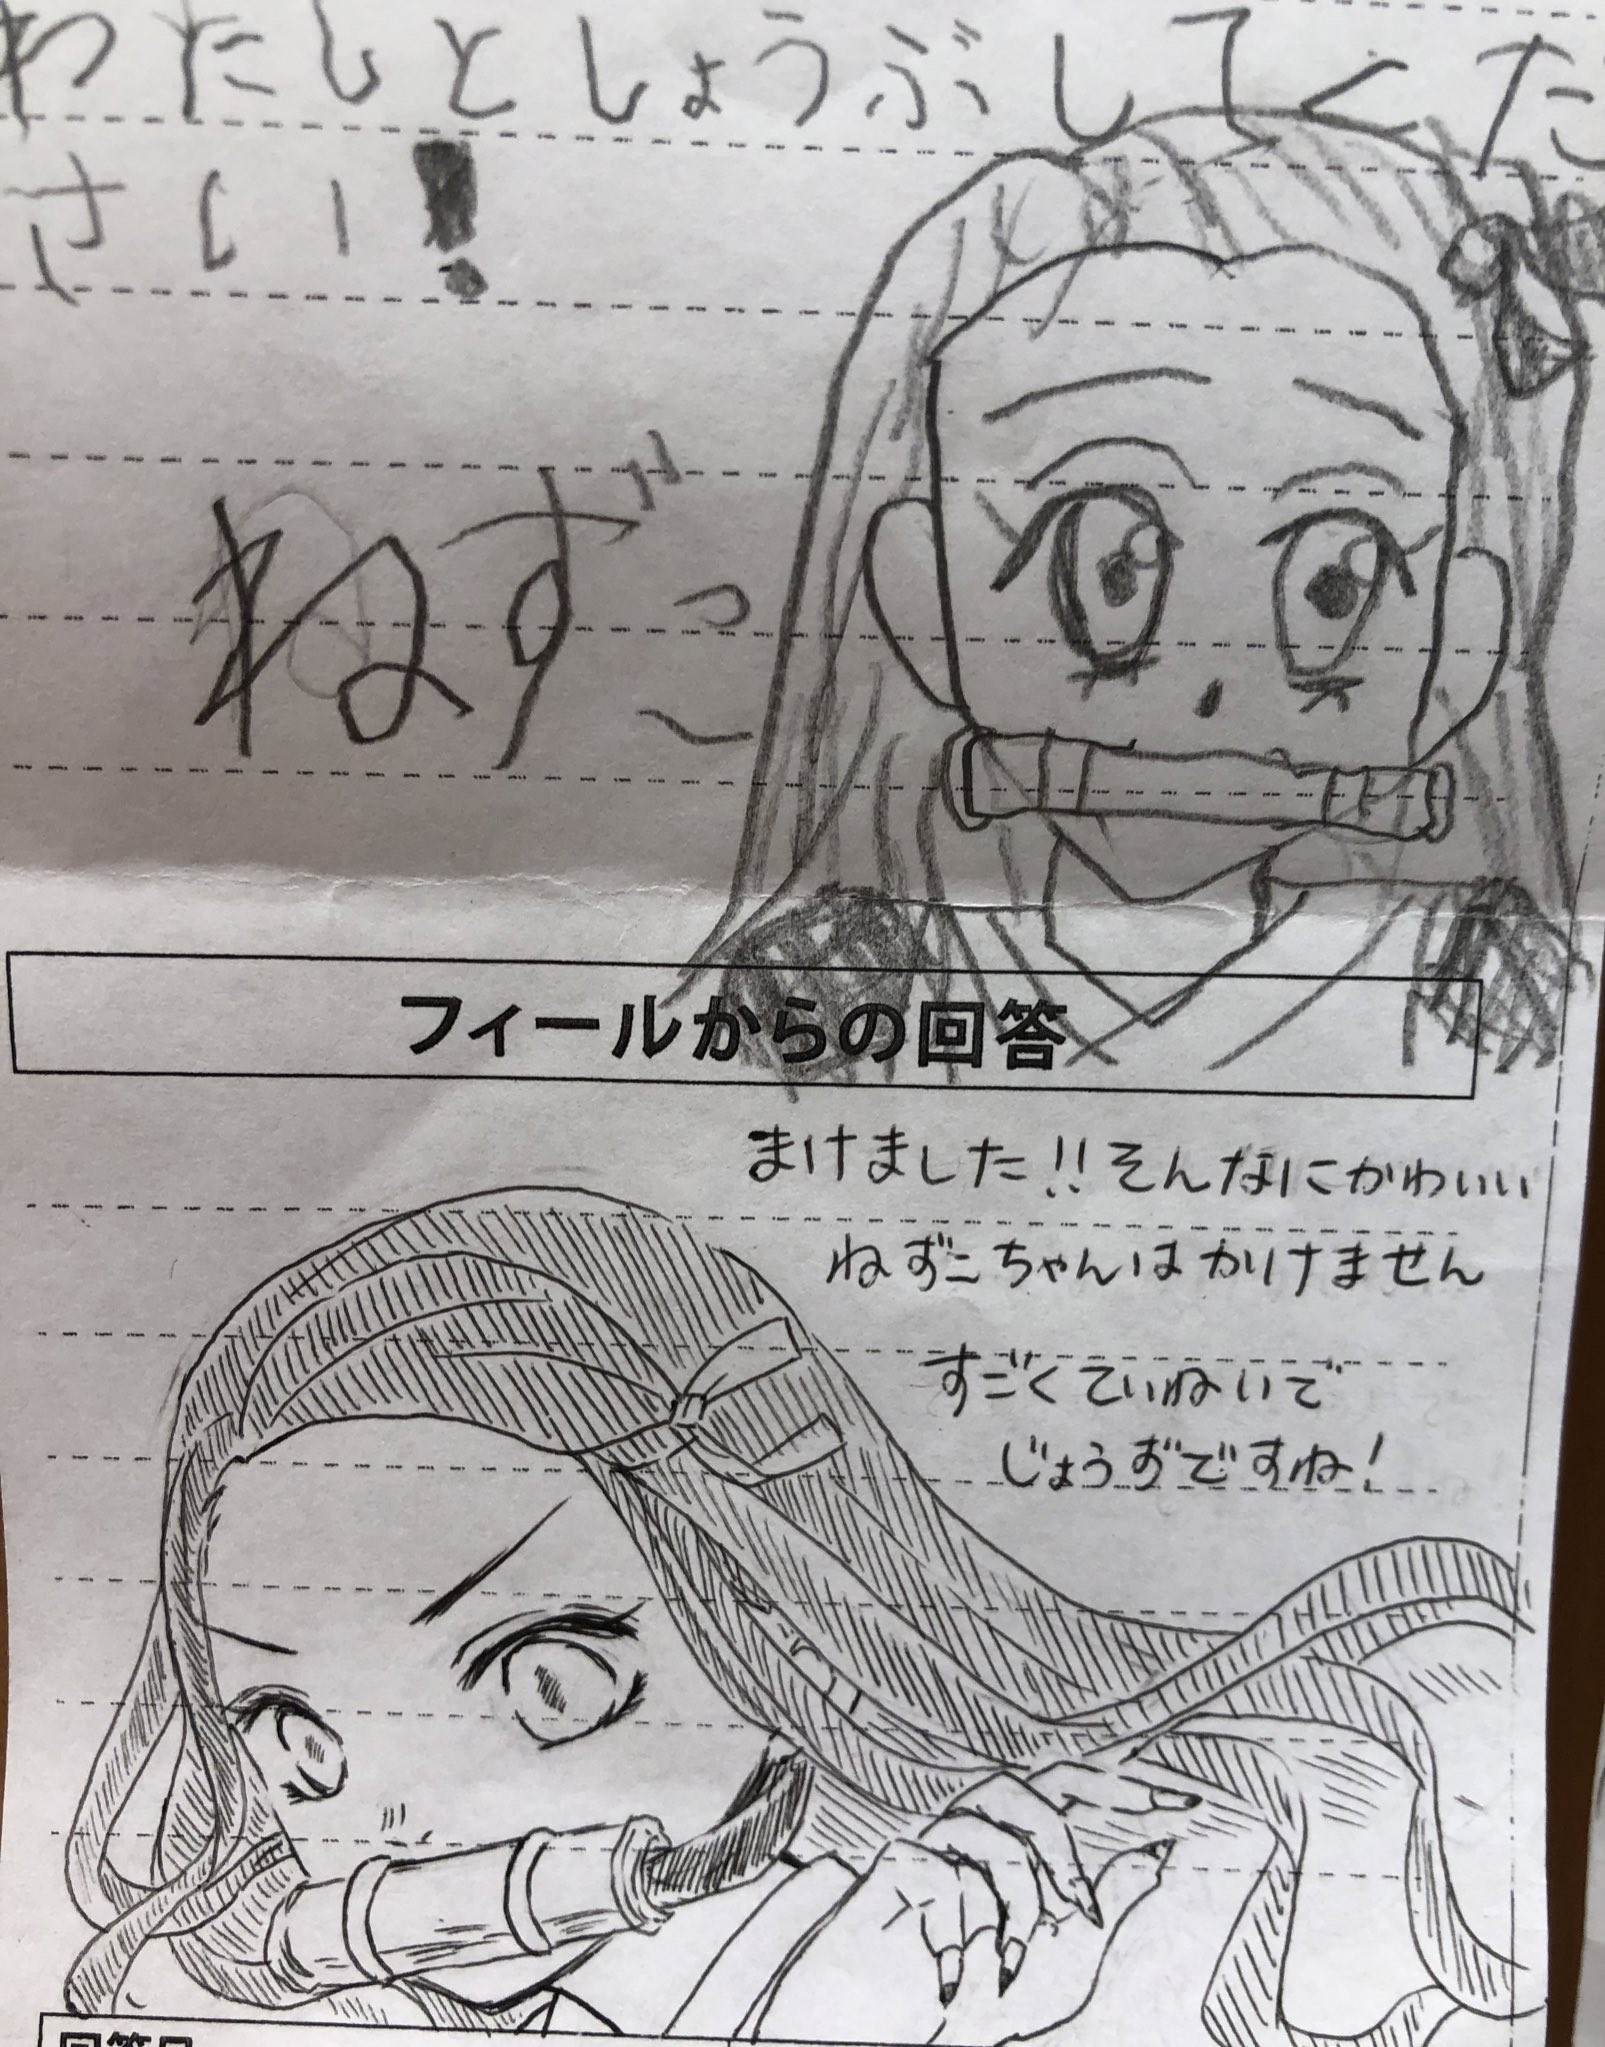 わたしとしょうぶしてくだ
さい!
ねずこ
フィールからの回答
まけました!!そんなにかわいい
ねずこちゃんはかけません
すごくていねいで
じょうずですね!
回答日